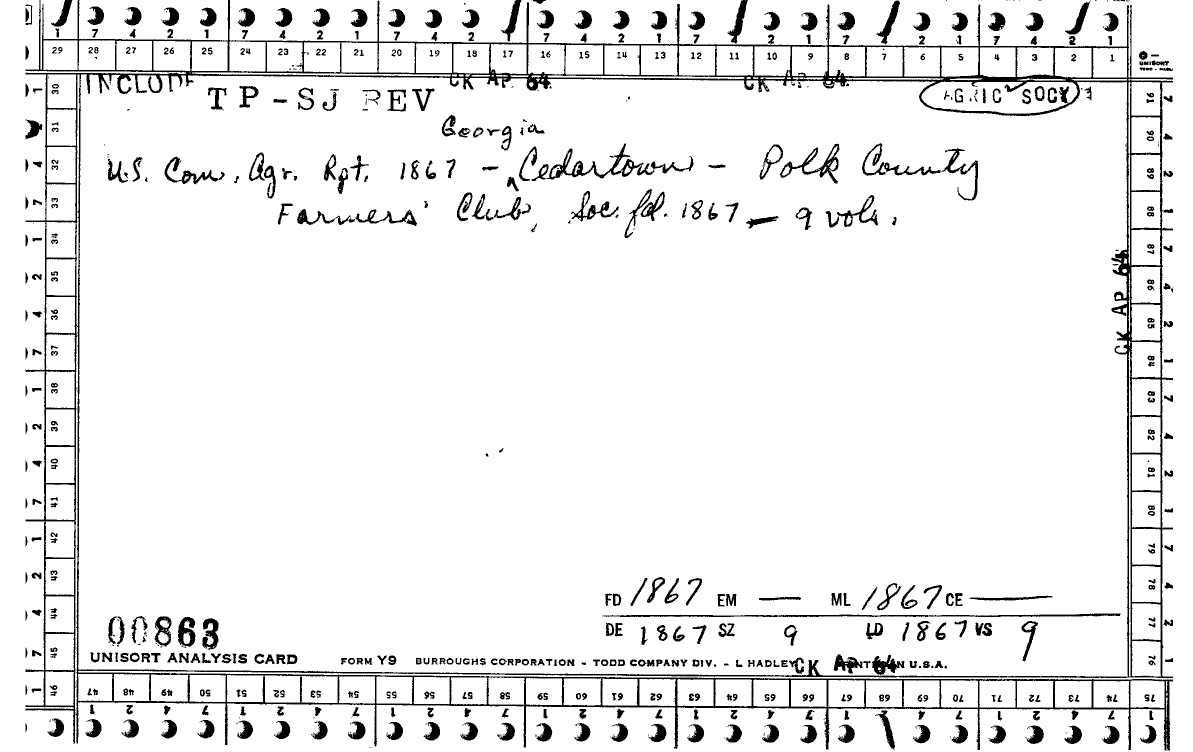 1 7 4 2 1 7 4 2 1 7 4 2 1 7 4 2 1 7 4 2 1 7 4 2 1 7 4 2 1
29 28 27 26 25 24 23 22 21 20 19 18 17 16 15 14 13 12 11 10 9 8 7 6 5 4 3 2 1
UNISORT
INCLUDE CK AP 64 CK AP 64
TP-SJ REV AGRIC SOCY
Georgia
U.S. Com. Agr. Rpt. 1867 - ^Cedartown - Polk County
Farmers' Club, Soc. fd. 1867 — 9 vols.
30 31 32 33 34 35 36 37 38 39 40 41 42 43 44 45 46
91 90 89 88 87 86 85 84 83 82 81 80 79 78 77 76
CK AP 64
FD 1867 EM — ML 1867 CE —
DE 1867 SZ 9 LD 1867 VS 9
00863
UNISORT ANALYSIS CARD FORM Y9 BURROUGHS CORPORATION - TODD COMPANY DIV. - L HADLEY CK AP 64 IN U.S.A.
47 48 49 50 51 52 53 54 55 56 57 58 59 60 61 62 63 64 65 66 67 68 69 70 71 72 73 74 75
1 2 4 7 1 2 4 7 1 2 4 7 1 2 4 7 1 2 4 7 1 2 4 7 1 2 4 7 1